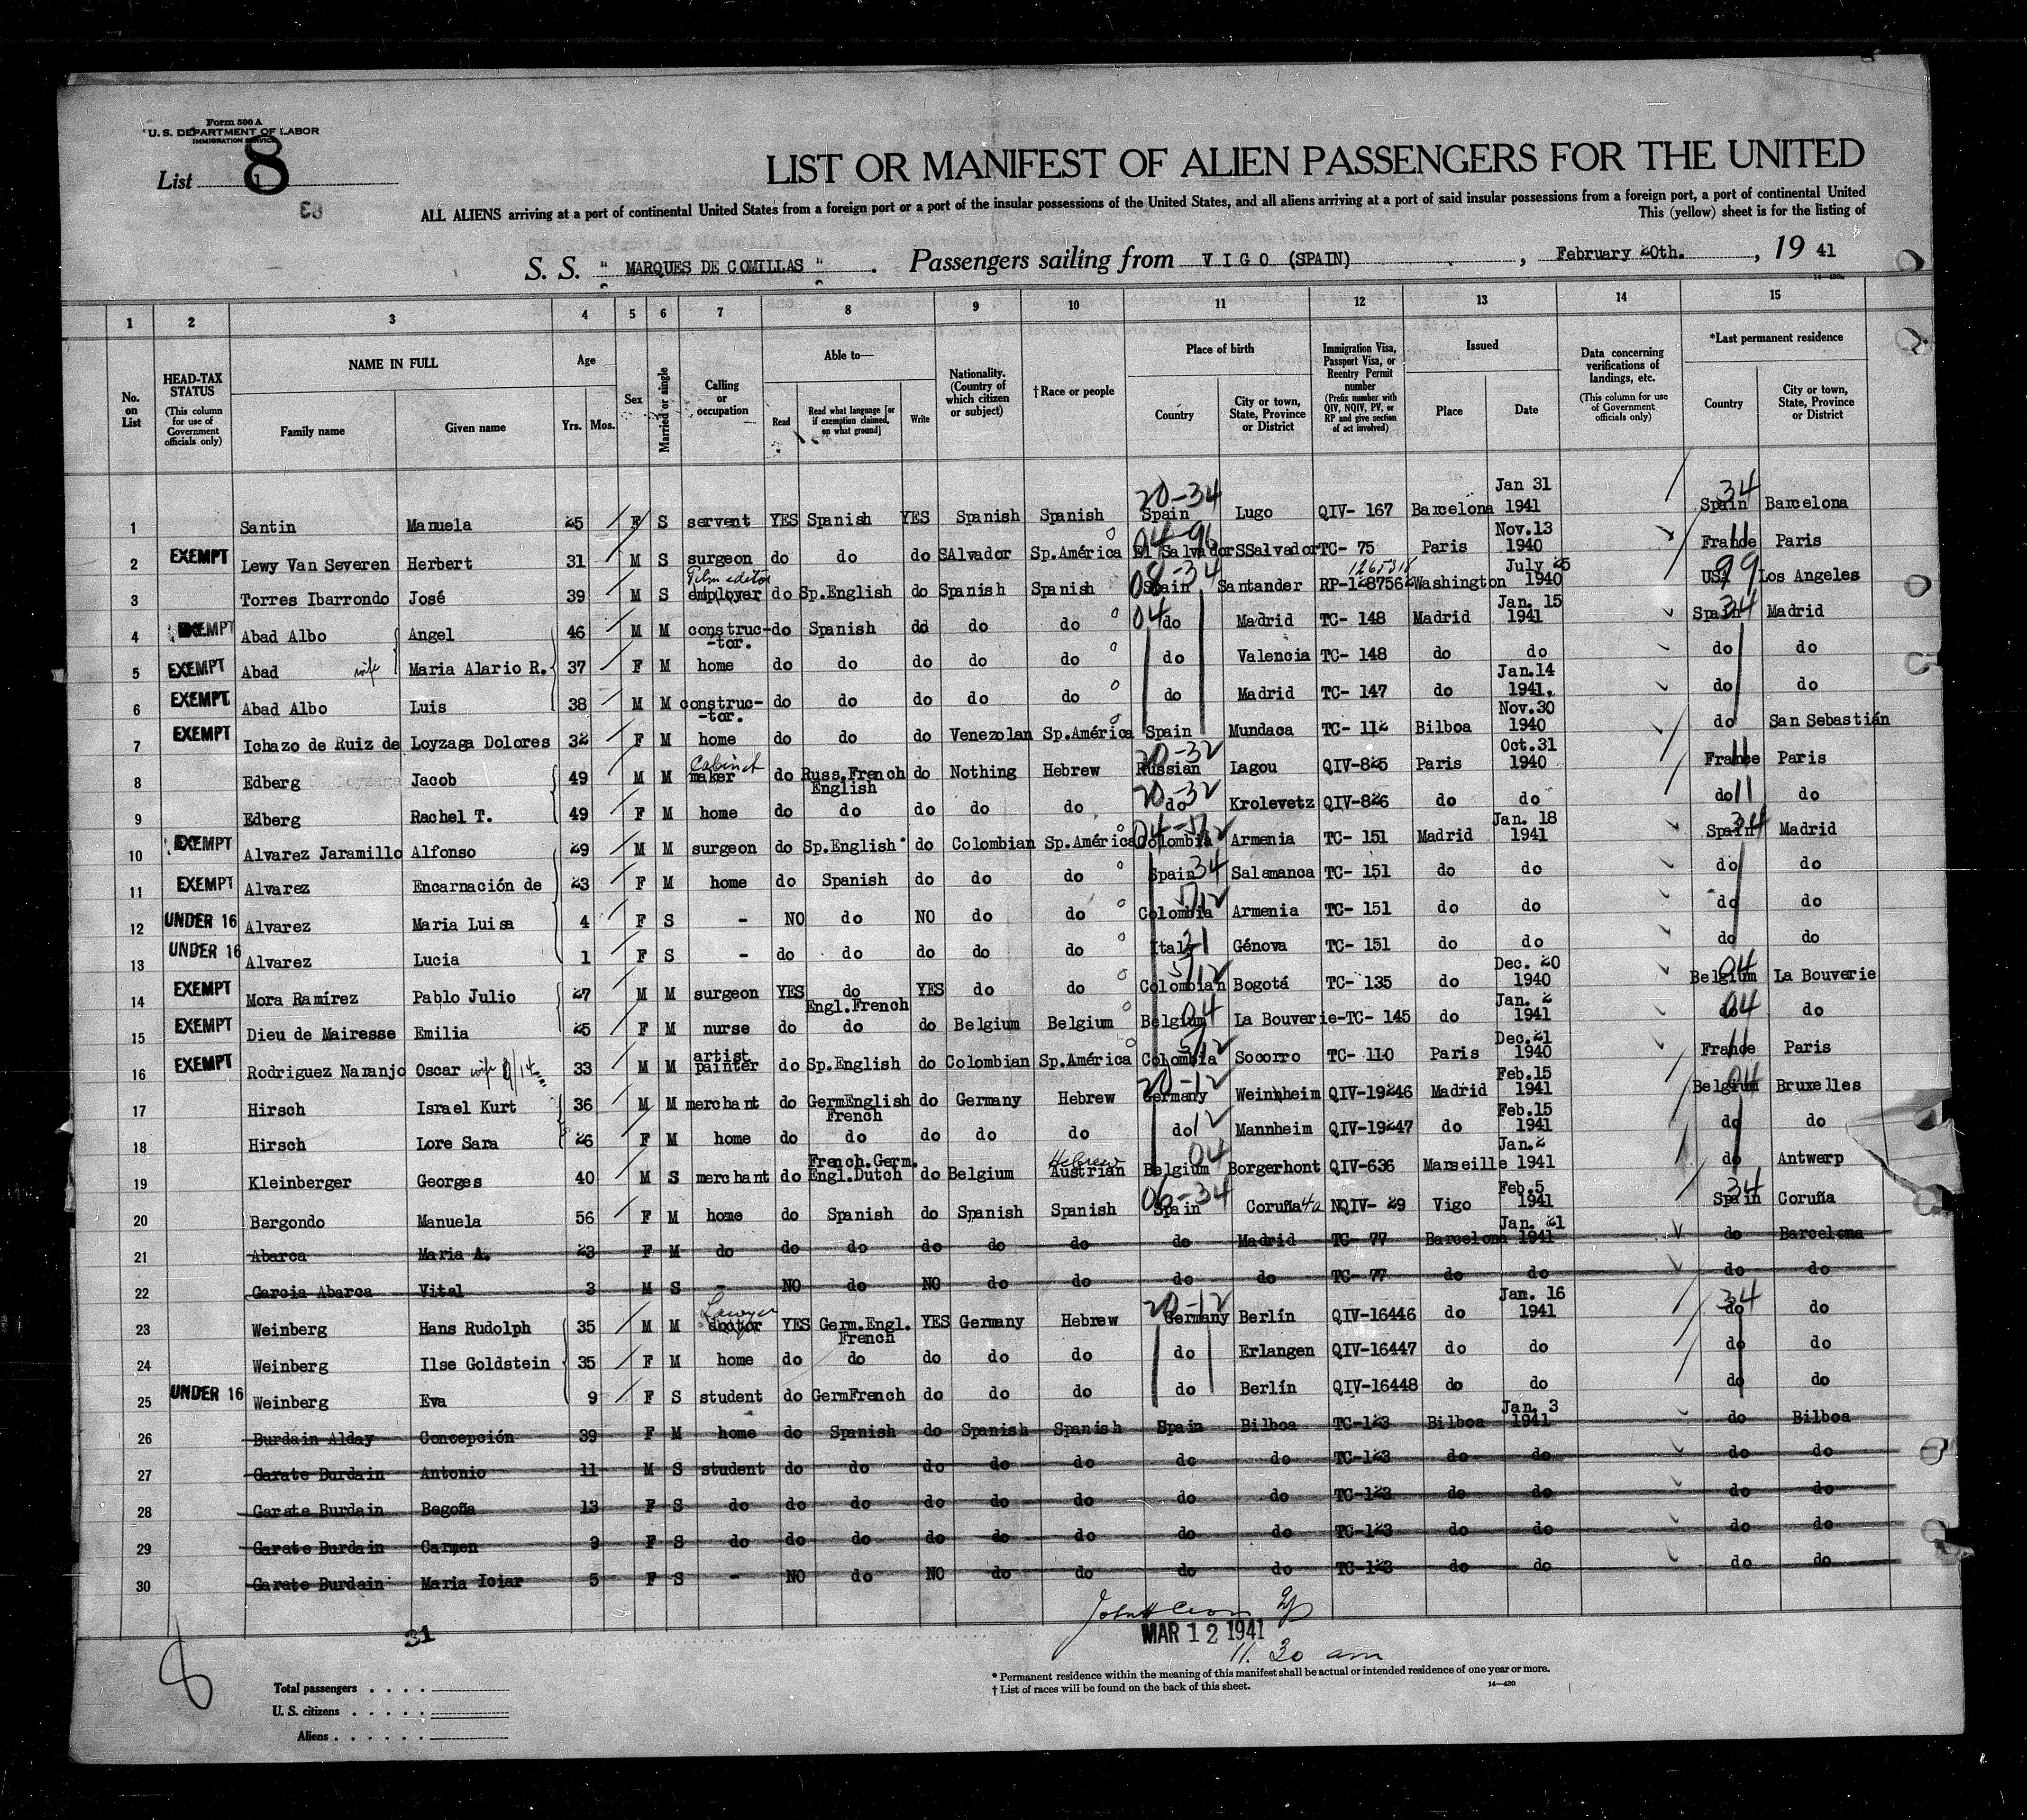 Form 500 A
U. S. DEPARTMENT OF LABOR
IMMIGRATION SERVICE
List 8
LIST OR MANIFEST OF ALIEN PASSENGERS FOR THE UNITED
ALL ALIENS arriving at a port of continental United States from a foreign port or a port of the insular possessions of the United States, and all aliens arriving at a port of said insular possessions from a foreign port, a port of continental United
This (yellow) sheet is for the listing of
S. S. " MARQUES DE COMILLAS " . Passengers sailing from V I G O (SPAIN) , February 20th. , 19 41
1 2 3 4 5 6 7 8 9 10 11 12 13 14 15
No. on List
HEAD-TAX STATUS (This column for use of Government officials only)
NAME IN FULL Family name Given name
Age Yrs. Mos.
Sex
Married or single
Calling or occupation
Able to— Read Read what language [or if exemption claimed, on what ground] Write
Nationality. (Country of which citizen or subject)
†Race or people
Place of birth Country City or town, State, Province or District
Immigration Visa, Passport Visa, or Reentry Permit number (Prefix number with QIV, NQIV, PV, or RP and give section of act involved)
Issued Place Date
Data concerning verifications of landings, etc. (This column for use of Government officials only)
*Last permanent residence Country City or town, State, Province or District
1 Santin Manuela 25 F S servent YES Spanish YES Spanish Spanish 20-34 Spain Lugo QIV- 167 Barcelona Jan 31 1941 34 Spain Barcelona
2 EXEMPT Lewy Van Severen Herbert 31 M S surgeon do do do SAlvador Sp.América 04-96 El Salvador SSalvador TC- 75 Paris Nov.13 1940 11 France Paris
3 Torres Ibarrondo José 39 M S Film editor employer do Sp.English do Spanish Spanish 08-34 Spain Santander RP-1287562 1265318 Washington July 25 1940 99 USA Los Angeles
4 EXEMPT Abad Albo Angel 46 M M construc-tor. do Spanish do do do 04 do Madrid TC- 148 Madrid Jan. 15 1941 34 Spain Madrid
5 EXEMPT Abad wife Maria Alario R. 37 F M home do do do do do do Valencia TC- 148 do do do do
6 EXEMPT Abad Albo Luis 38 M M construc-tor. do do do do do do Madrid TC- 147 do Jan.14 1941. do do
7 EXEMPT Ichazo de Ruiz de Loyzaga Dolores 32 F M home do do do Venezolan Sp.América Spain Mundaca TC- 112 Bilboa Nov.30 1940 do San Sebastián
8 Edberg Jacob 49 M M Cabinet maker do Russ.French English do Nothing Hebrew 20-32 Russian Lagou QIV-825 Paris Oct.31 1940 11 France Paris
9 Edberg Rachel T. 49 F M home do do do do do 20-32 do Krolevetz QIV-826 do do do 11 do
10 EXEMPT Alvarez Jaramillo Alfonso 29 M M surgeon do Sp.English do Colombian Sp.América 04-5/12 Colombia Armenia TC- 151 Madrid Jan. 18 1941 34 Spain Madrid
11 EXEMPT Alvarez Encarnación de 23 F M home do Spanish do do do Spain 34 Salamanca TC- 151 do do do do
12 UNDER 16 Alvarez Maria Luisa 4 F S - NO do NO do do 5/12 Colombia Armenia TC- 151 do do do do
13 UNDER 16 Alvarez Lucia 1 F S - do do do do do Italy 21 Génova TC- 151 do do do do
14 EXEMPT Mora Ramírez Pablo Julio 27 M M surgeon YES do Engl.French YES do do 5/12 Colombian Bogotá TC- 135 do Dec. 20 1940 04 Belgium La Bouverie
15 EXEMPT Dieu de Mairesse Emilia 25 F M nurse do do do Belgium Belgium Belgium 04 La Bouverie- TC- 145 do Jan. 2 1941 do 04 do
16 EXEMPT Rodriguez Naranjo Oscar wife 33 M M artist painter do Sp.English do Colombian Sp.América 5/12 Colombia Socorro TC- 110 Paris Dec.21 1940 11 France Paris
17 Hirsch Israel Kurt 36 M M merchant do GermEnglish French do Germany Hebrew 20-12 Germany Weinhheim QIV-19246 Madrid Feb.15 1941 04 Belgium Bruxelles
18 Hirsch Lore Sara 26 F M home do do do do do do 12 Mannheim QIV-19247 do Feb.15 1941 do do
19 Kleinberger Georges 40 M S merchant do French.Germ. Engl.Dutch do Belgium Hebrew Austrian Belgium 04 Borgerhont QIV-636 Marseille Jan.2 1941 do Antwerp
20 Bergondo Manuela 56 F M home do Spanish do Spanish Spanish 06-34 Spain Coruña NQIV- 29 Vigo Feb.5 1941 34 Spain Coruña
21 Abarca Maria A. 23 F M do do do do do do do Madrid TC- 77 Barcelona Jan. 21 1941 do Barcelona
22 Garcia Abarca Vital 3 M S - NO do NO do do do do TC- 77 do do do do
23 Weinberg Hans Rudolph 35 M M Lawyer doctor YES Germ.Engl. French YES Germany Hebrew 20-12 Germany Berlín QIV-16446 do Jan. 16 1941 34 do do
24 Weinberg Ilse Goldstein 35 F M home do do do do do do Erlangen QIV-16447 do do do do
25 UNDER 16 Weinberg Eva 9 F S student do GermFrench do do do do Berlín QIV-16448 do do do do
26 Burdain Alday Concepción 39 F M home do Spanish do Spanish Spanish Spain Bilboa TC-123 Bilboa Jan. 3 1941 do Bilboa
27 Garate Burdain Antonio 11 M S student do do do do do do do TC-123 do do do do
28 Garate Burdain Begoña 13 F S do do do do do do do do TC-123 do do do do
29 Garate Burdain Carmen 9 F S do do do do do do do do TC-123 do do do do
30 Garate Burdain Maria Iciar 5 F S - NO do NO do do do do TC-123 do do do do
31
MAR 12 1941
11.30 am
8
* Permanent residence within the meaning of this manifest shall be actual or intended residence of one year or more.
† List of races will be found on the back of this sheet.
14—430
Total passengers . . . .
U. S. citizens . . . . .
Aliens . . . . . .